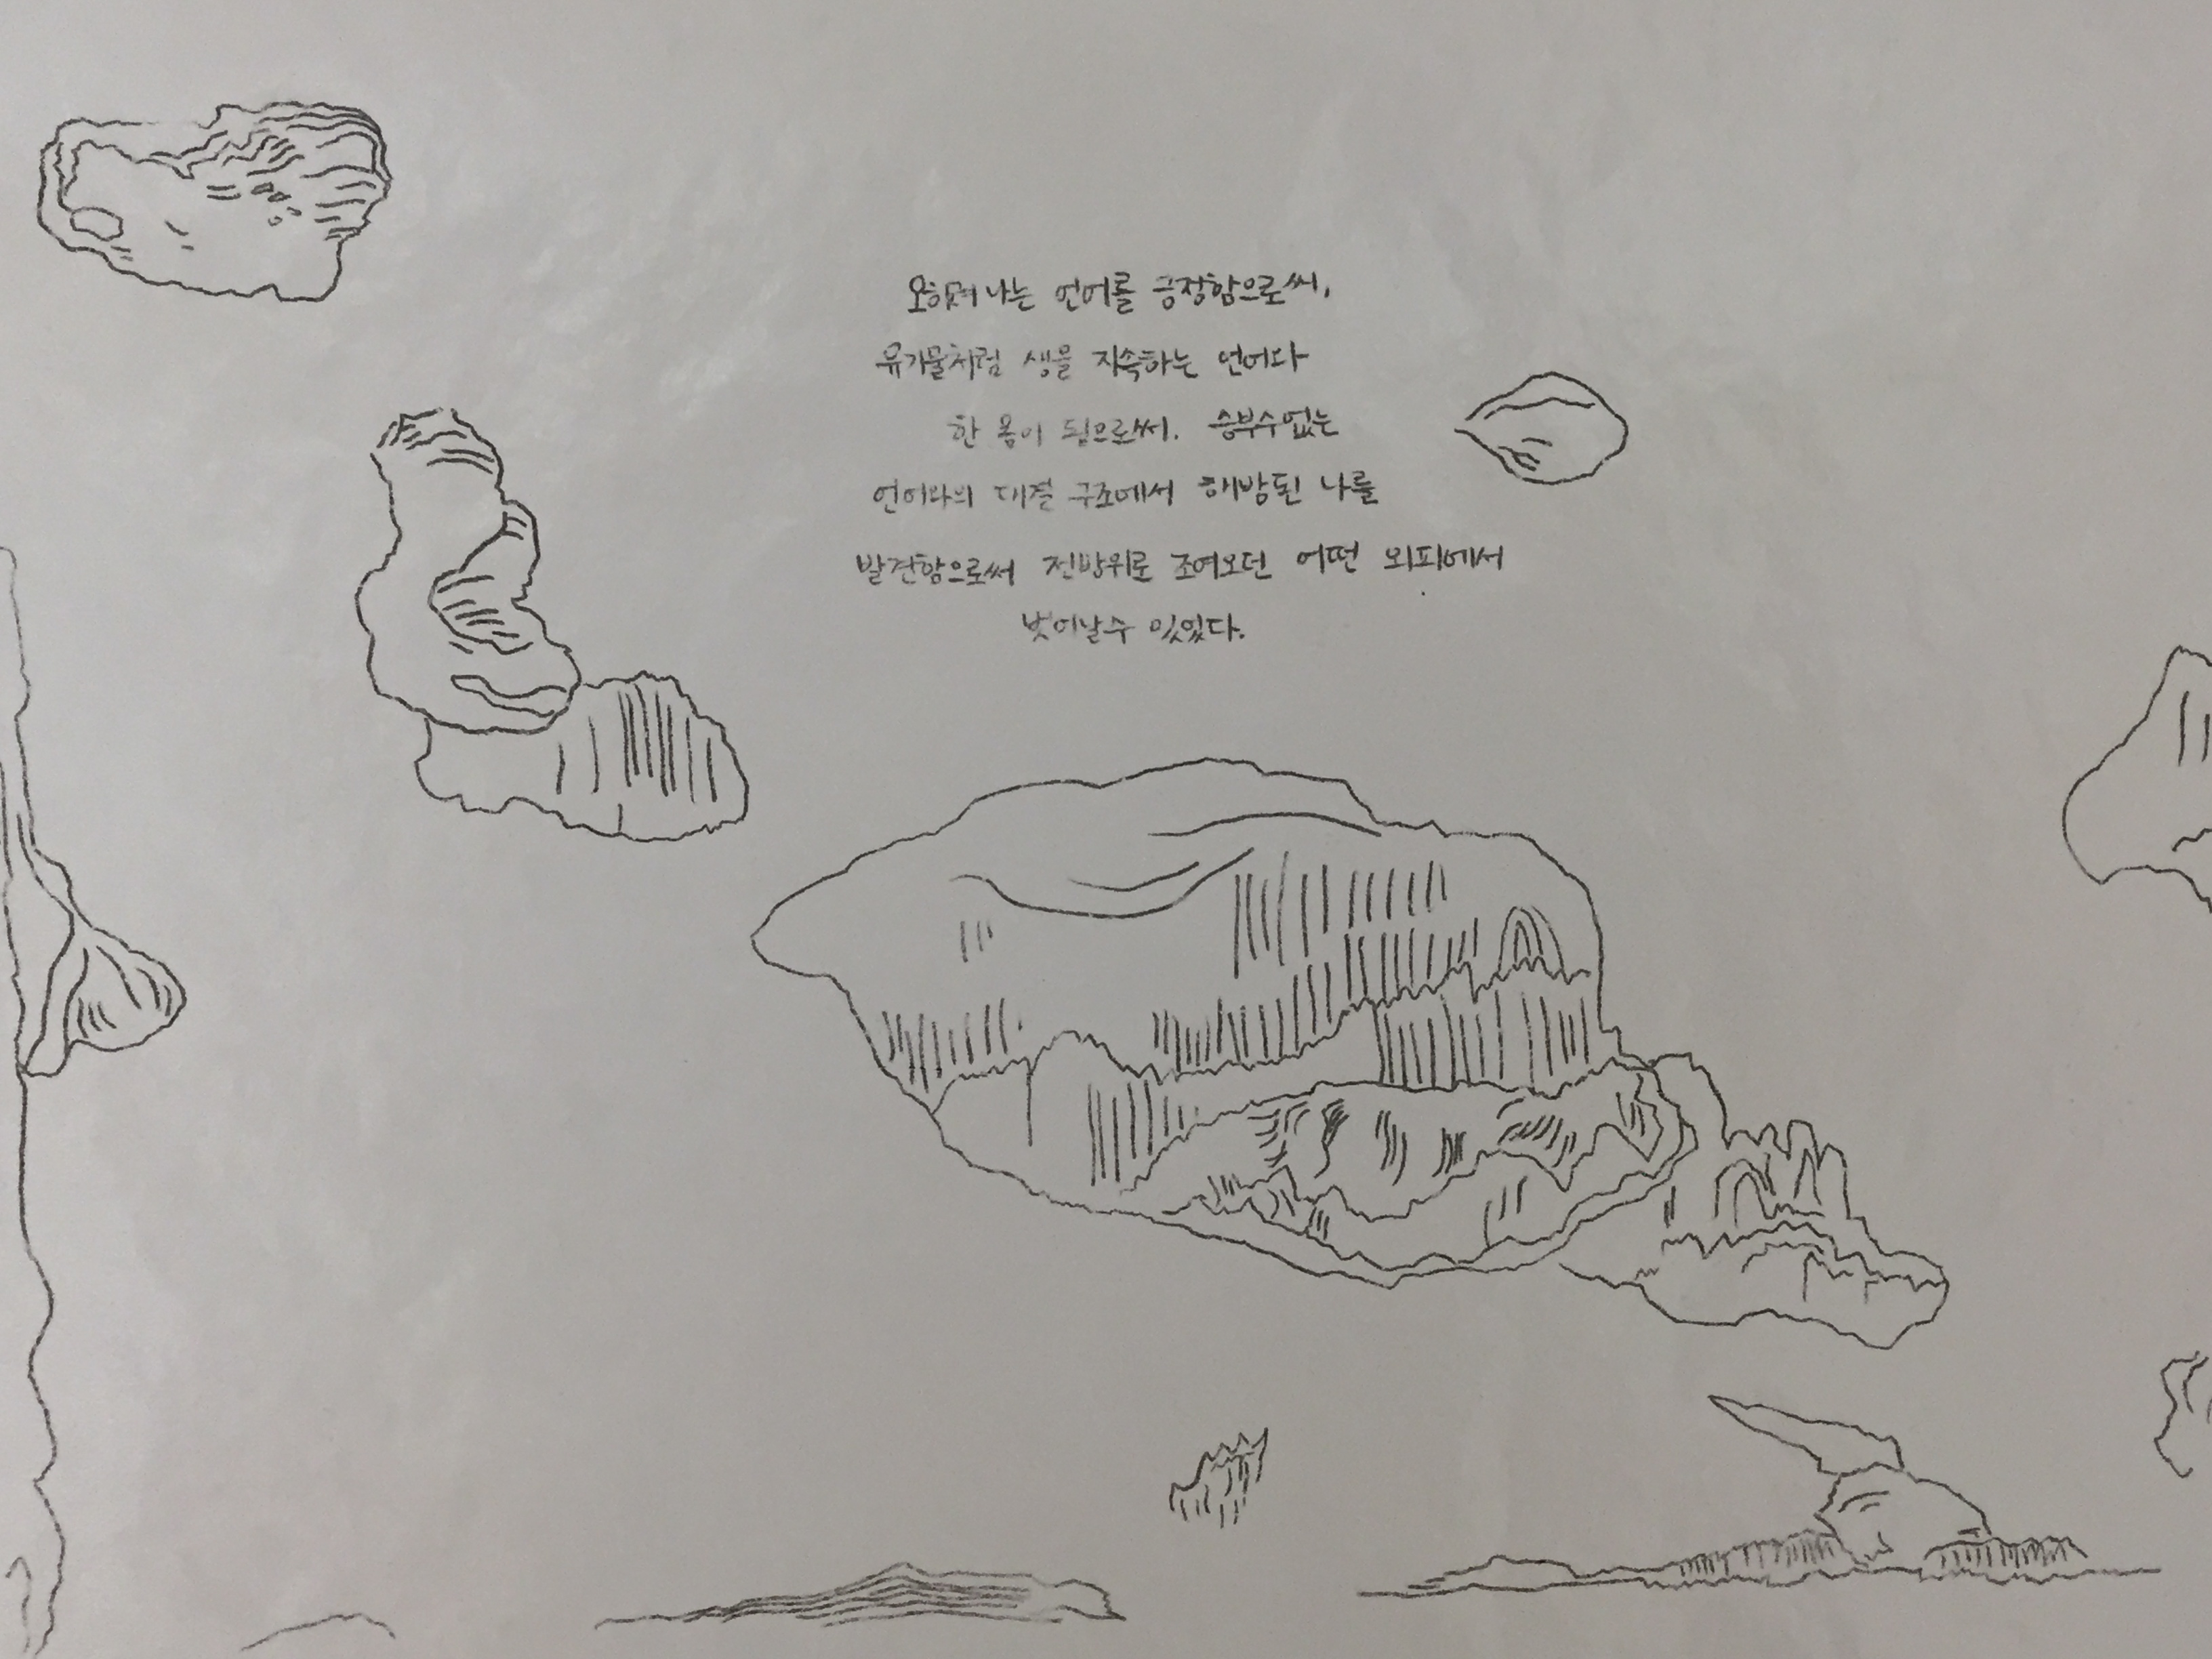 오히려 나는 언어를 긍정함으로써,
유기물처럼 생을 지속하는 언어와
한 몸이 됨으로써. 승부수없는
언어와의 대결 구조에서 해방된 나를
발견함으로써 전방위로 조여오던 어떤 외피에서
벗어날수 있었다.